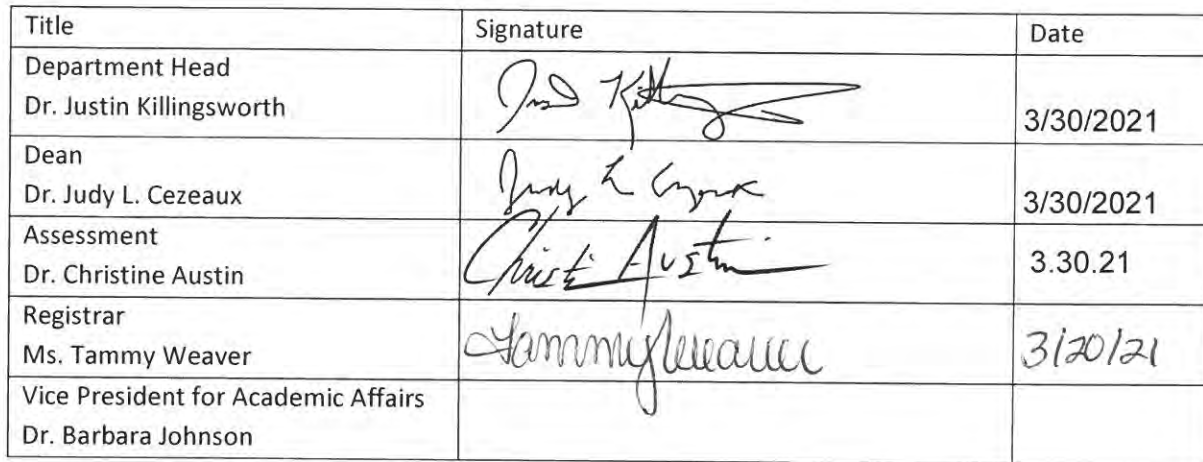 Title Signature Date
Department Head
Dr. Justin Killingsworth 3/30/2021
Dean
Dr. Judy L. Cezeaux Judy L Cezeaux 3/30/2021
Assessment
Dr. Christine Austin Christi Austin 3.30.21
Registrar
Ms. Tammy Weaver Tammy Weaver 3/20/21
Vice President for Academic Affairs
Dr. Barbara Johnson